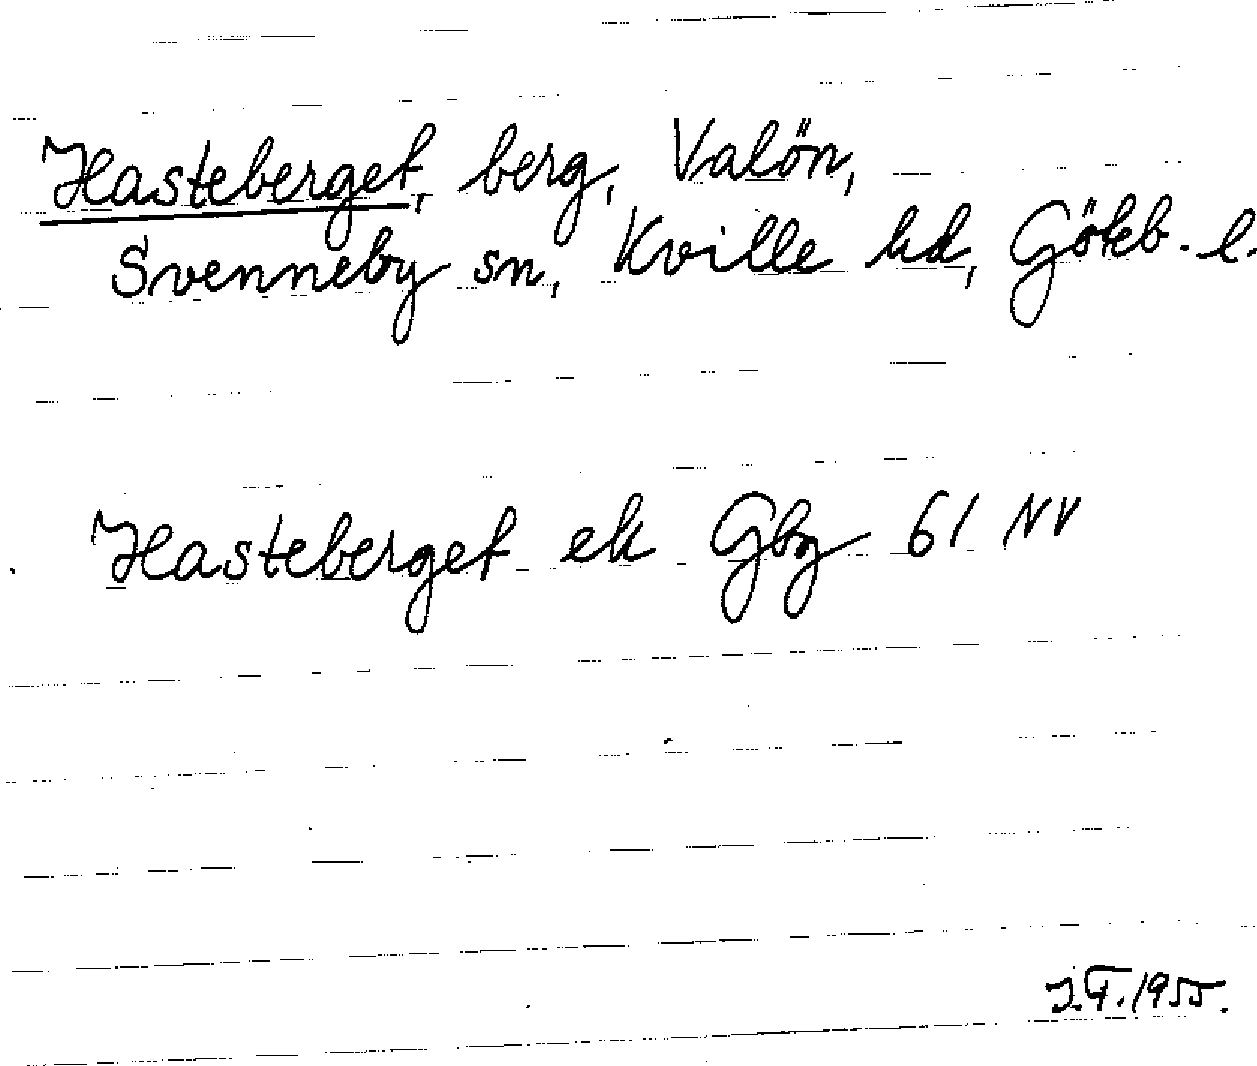 Hasteberget, berg, Valön,
Svenneby sn, Kville hd, Göteb. l.
Hasteberget ek Gbg 61 NV
J.T. 1955.